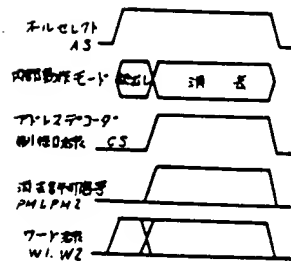 オールセレクト
AS
内部動作モード 読出し 消去
アドレスデコーダー
制御回路 CS
消去許可信号
PM1,PM2
ワード線
W1, W2